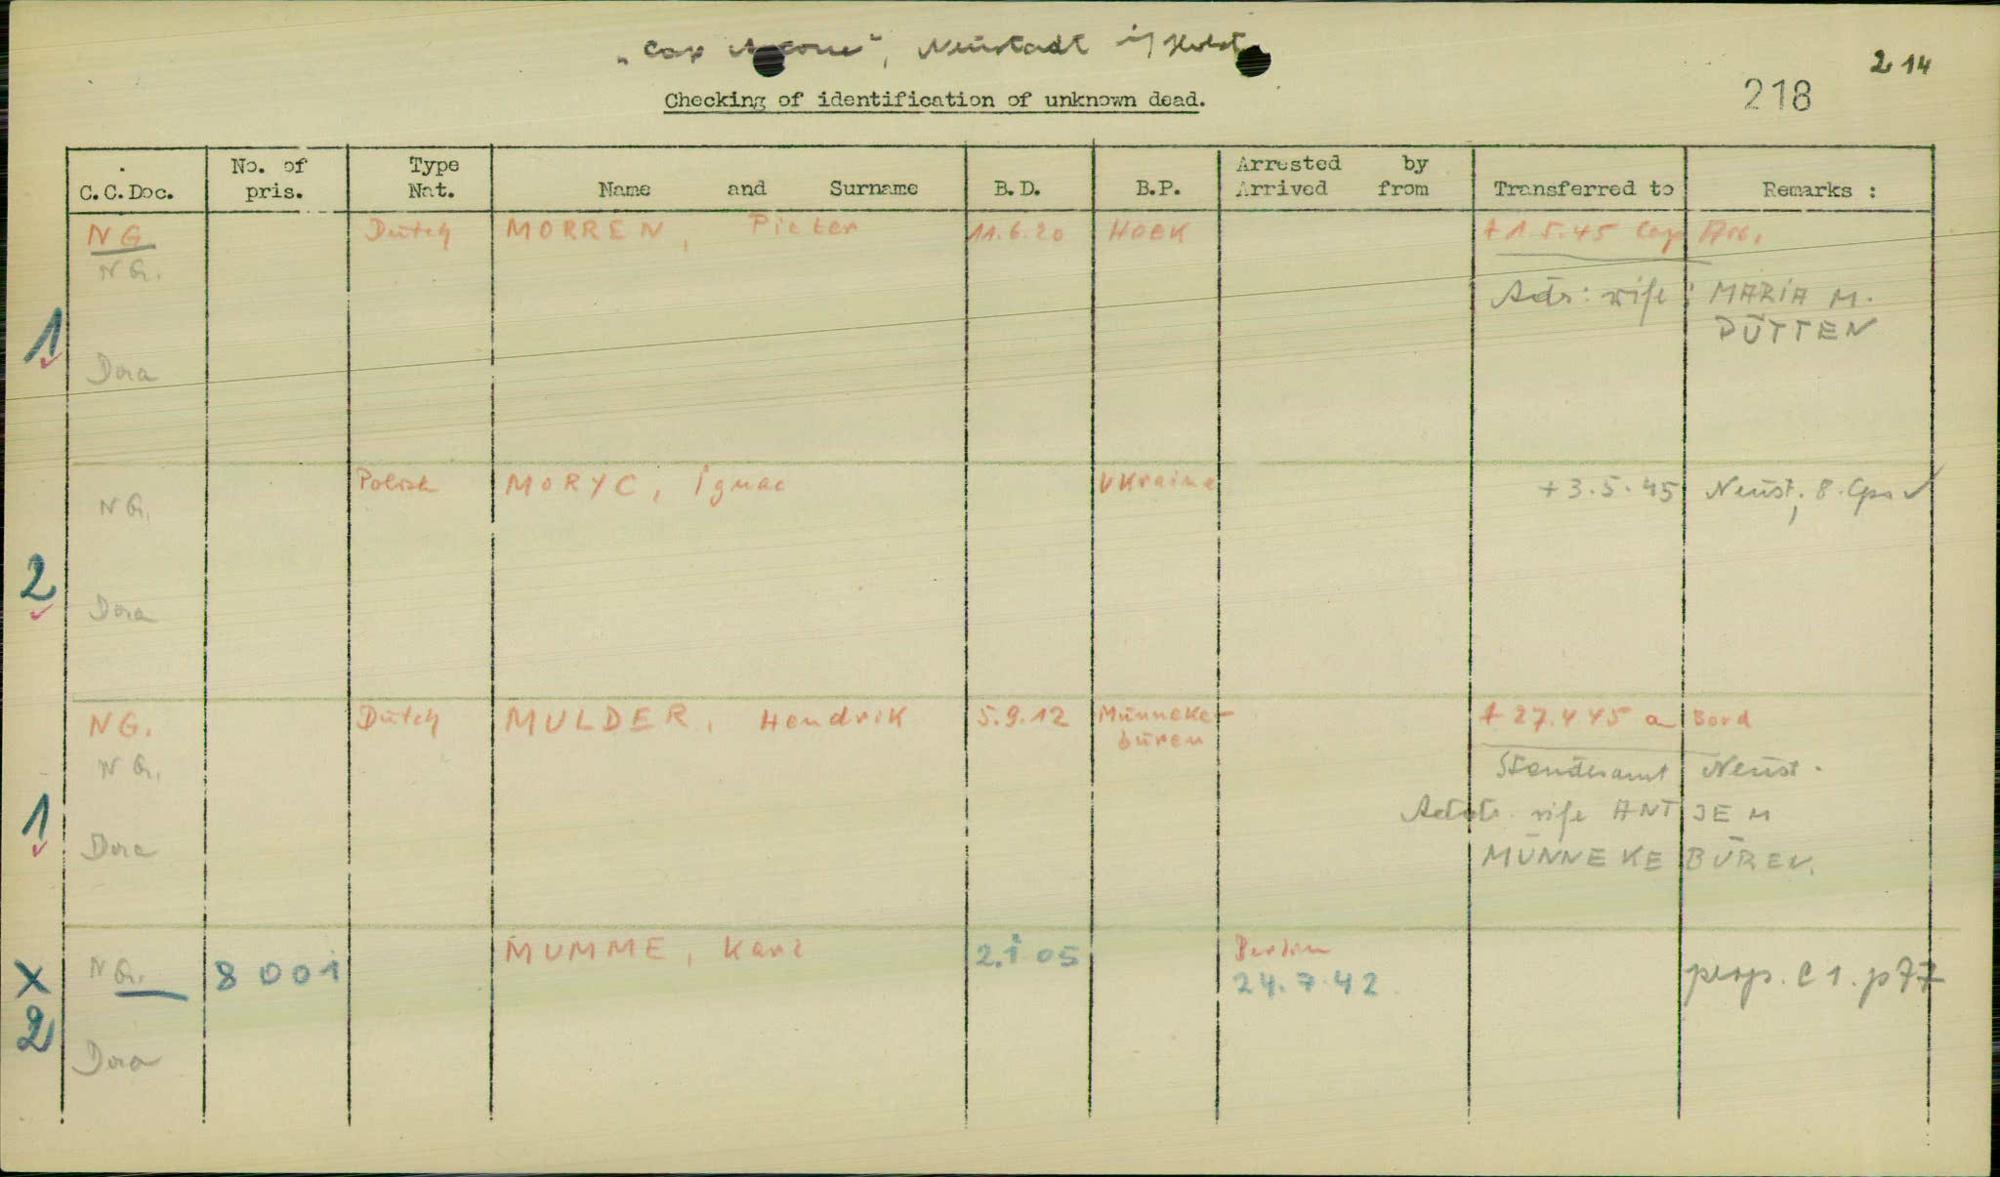 „Cap Arcona", Neustadt i/Holst
2 14
218
Checking of identification of unknown dead.
C.C.Doc. No. of pris. Type Nat. Name and Surname B.D. B.P. Arrested by Arrived from Transferred to Remarks :
NG Dutch MORREN, Pieter 11.6.20 HOEK + 1 5.45 Cap Arc.
NG.
Adr: wife: MARIA M.
DŪTTEN
1
Dora
Polish MORYC, Ignac Ukraine + 3.5.45 Neust, 8. Cps ✓
NG.
2
Dora
NG. Dutch MULDER, Hendrik 5.9.12 Münneke- + 27.4 45 a Bord
büren
NG. Standesamt Neust.
wife ANTJE M
1
Dora MŪNNEKEBŪREN.
X NG. 8001 MUMME, Karl 2.1 05 Berlin
24.7.42. p77
2
Dora